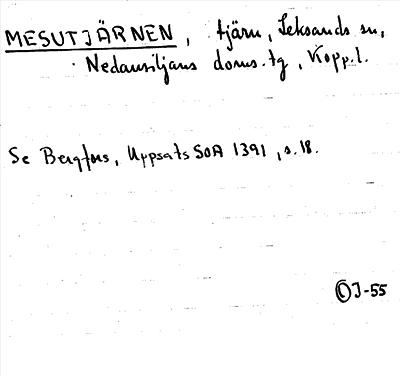 MESUTJÄRNEN, tjärn, Leksands sn,
Nedansiljans doms. tg, Kopp. l.
Se Bergfors, Uppsats SOA 1391, s. 18.
J-55